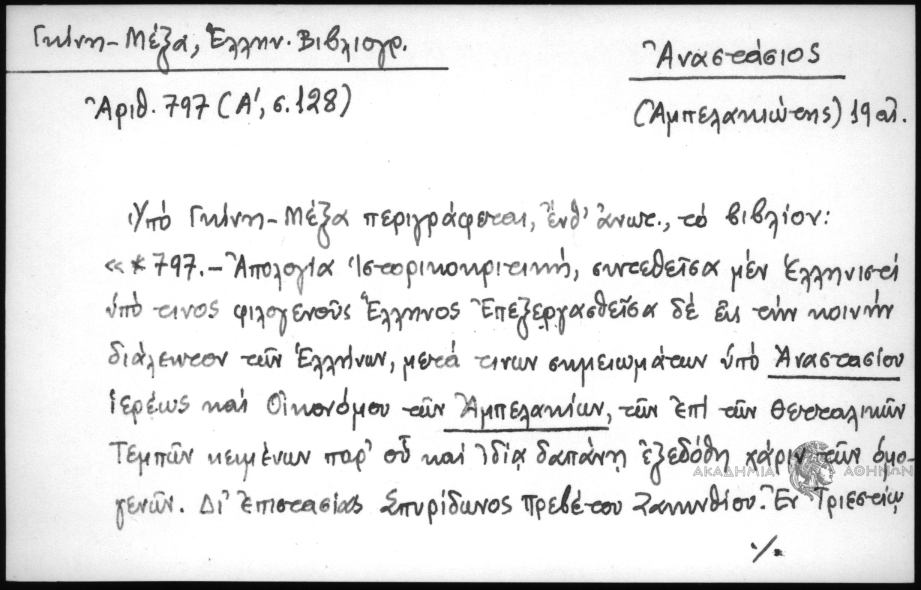 Γκίνη-Μέξα, Ἑλλην. Βιβλιογρ.
Ἀναστάσιος
Ἀριθ. 797 (Α', σ. 128)
(Ἀμπελακιώτης) 19 αἰ.
Ὑπό Γκίνη-Μέξα περιγράφεται, ἔνθ' ἄνωτ., τό βιβλίον:
«*797.- Ἀπολογία Ἱστορικοκριτική, συντεθεῖσα μέν Ἑλληνιστί
ὑπό τινος φιλογενοῦς Ἕλληνος Ἐπεξεργασθεῖσα δέ εἰς τήν κοινήν
διάλεκτον τῶν Ἑλλήνων, μετά τινων σημειωμάτων ὑπό Ἀναστασίου
ἱερέως καί Οἰκονόμου τῶν Ἀμπελακίων, τῶν ἐπί τῶν Θεσσαλικῶν
Τεμπῶν κειμένων παρ' οὗ καί ἰδίᾳ δαπάνῃ ἐξεδόθη χάριν τῶν ὁμο-
ΑΚΑΔΗΜΙΑ ΑΘΗΝΩΝ
γενῶν. Δι' ἐπιστασίας Σπυρίδωνος Πρεβέτου Ζακυνθίου. Ἐν Τριεστίῳ
·/.